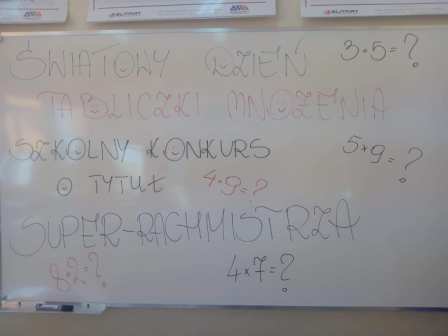 ŚWIATOWY DZIEŃ 3·5=?
TABLICZKI MNOŻENIA
SZKOLNY KONKURS 5*9=?
O TYTUŁ 4·9=?
SUPER-RACHMISTRZA
4×7=?